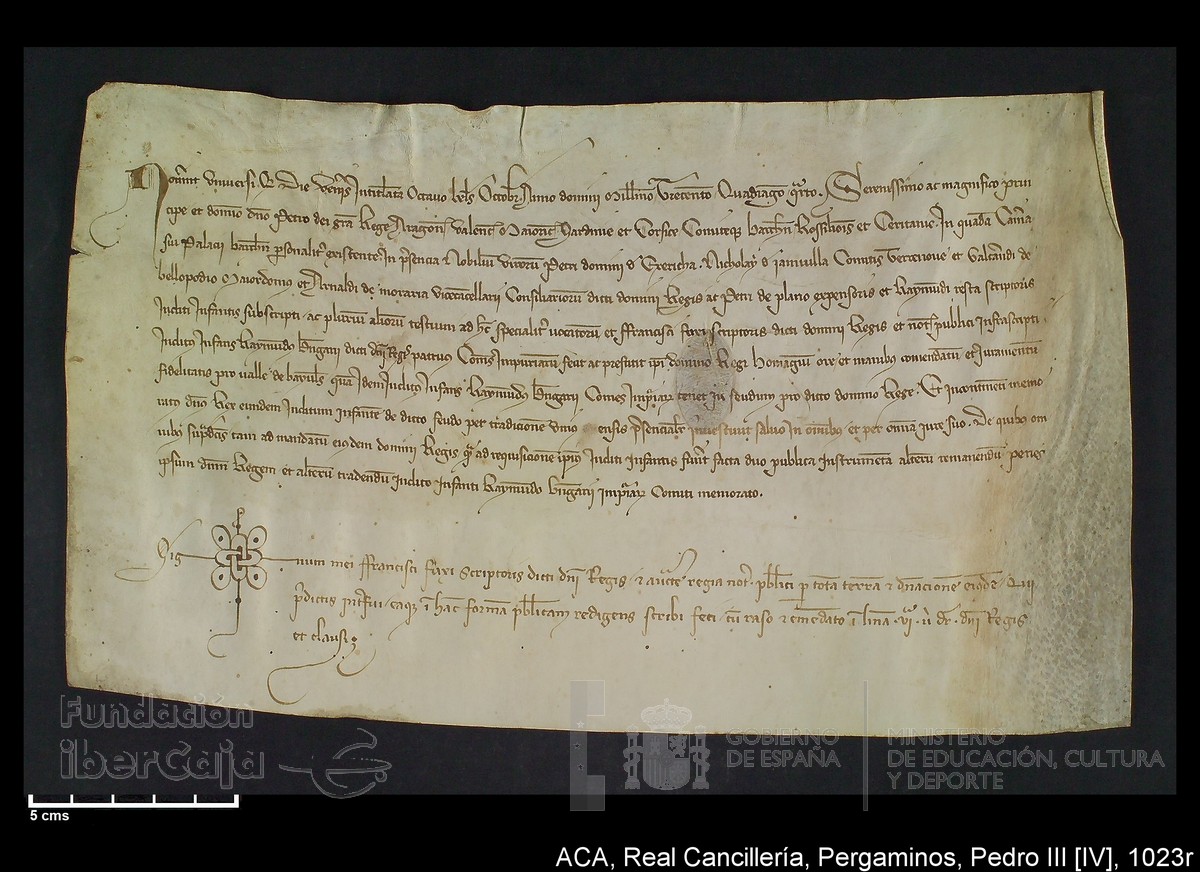 Noverint universi. Q Die veneris Intitulata Octavo kls Octobr. Anno domini Millesimo Trecento Quadrago qrto. Serenissimo ac magnifico prin
cipe et domino dno Petro dei gra Rege Aragon Valenc Maioric Sardinie et Corsice Comiteq Barchn Rossilionis et Ceritanie. In quada Cama
sui Palacij Barchn personalit existente. In psencia Nobiliu viroru Petri domini d Exericha. Nicholay d Janvilla Comitis Terrenove et
bellopodio Maiordomus et Arnaldi de moraria vicecancellarij Consiliarioru dicti domini Regis ac Petri de plano expensoris et Raymundi testa scriptoris
Incliti Infantis subscripti. ac plurim alioru testium ad hc specialit vocatoru et ffrancisci fuxi scriptoris dicti domini Regis et not publici Infrascripti.
Inclitus Infans Raymundus Bngarij dicti dni Regis patruus Comes Impuriaru fecit ac prestitit ipi domino Regi Homagiu ore et manibus comendatu et Iuramentu
fidelitatis pro valle de qua Idem Inclitus Infans Raymundus Bngarij Comes Impiar tenet in feudum pro dicto domino Rege. Et incontineti memo
ratus dns Rex eundem Inclitum Infante de dicto feudo per tradicione unius ensis psencialit investivit salvo In omibus et per omnia iure suo. De quibus om
nibus supradcis tam ad mandatu eiusdem domini Regis q ad requisicione ipius Incliti Infantis fuert facta duo publica Instrumeta alteru remanendu penes
ipsum dnm Regem et alteru tradendu Inclito Infanti Raymundo Bngarij Impiar Comiti memorato.
Sig num mei ffrancisci fuxi Scriptoris dicti dni Regis. et aucte regia not. pblici p tota terra et dnacione eiusde. Qui
pdictis interfui. eaq i hac forma pblicam redigens scribi feci. cu raso et emedato i linea vi u dr. dni Regis
et clausi.
Fundación
iberCaja
GOBIERNO
DE ESPAÑA
MINISTERIO
DE EDUCACIÓN, CULTURA
Y DEPORTE
5 cms
ACA, Real Cancillería, Pergaminos, Pedro III [IV], 1023r